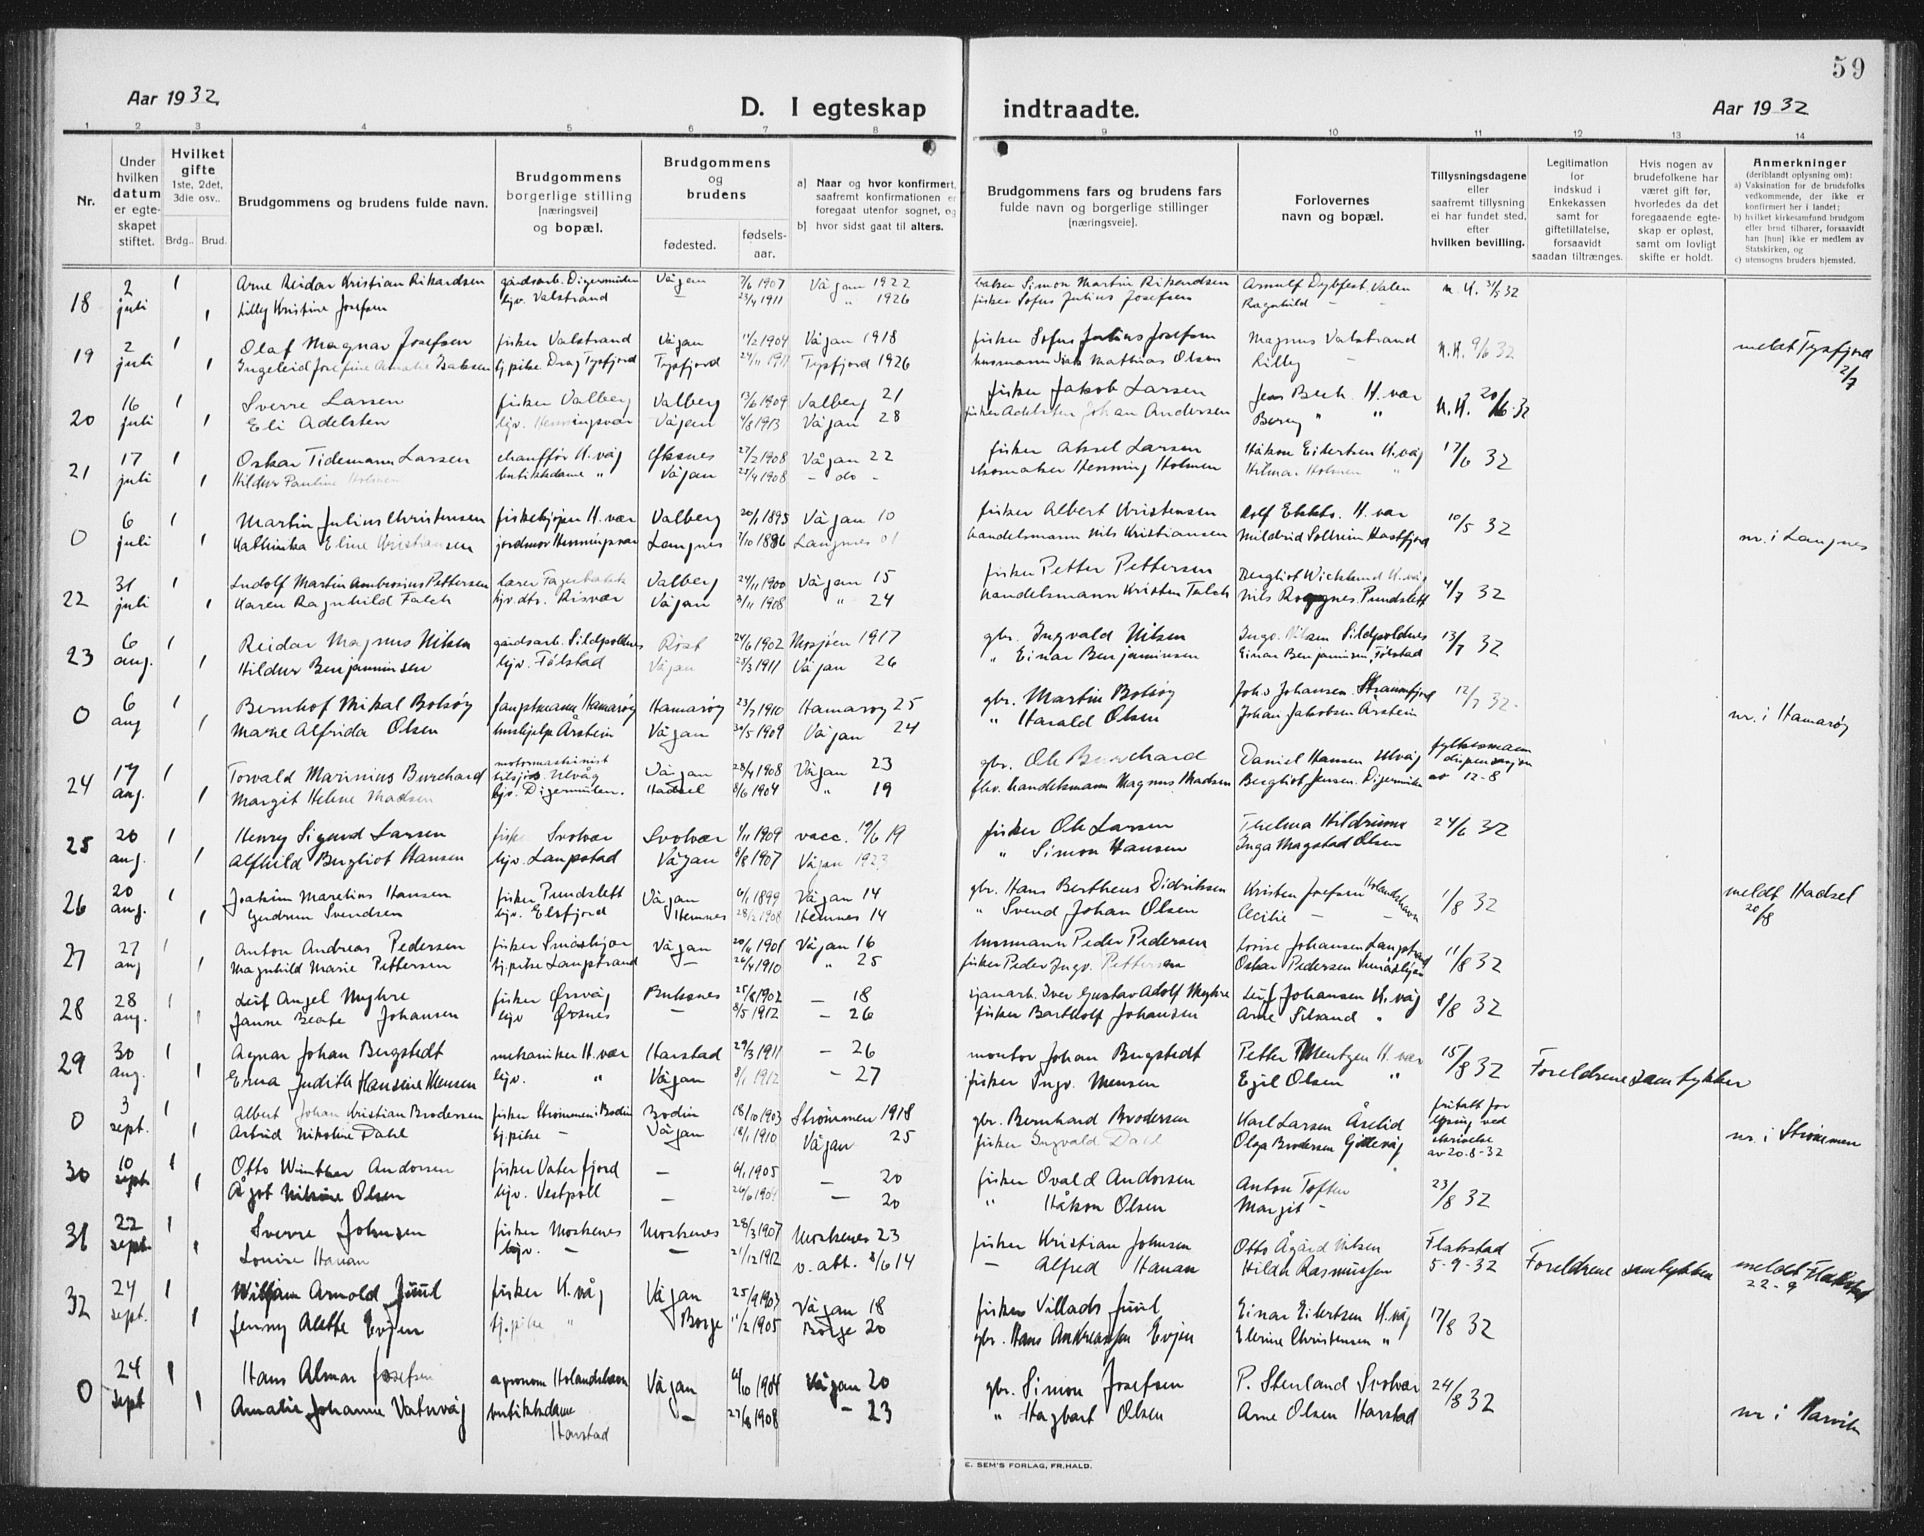 59
Aar 1932.
D. I egteskap indtraadte.
Aar 1932
1 2 3 4 5 6 7 8 9 10 11 12 13 14
Nr.
Under hvilken datum er egteskapet stiftet.
Hvilket gifte 1ste, 2det, 3die osv..
Brdg.. Brud.
Brudgommens og brudens fulde navn.
Brudgommens borgerlige stilling [næringsvei] og bopæl.
Brudgommens og brudens
fødested. fødsels-aar.
a) Naar og hvor konfirmert, saafremt konfirmationen er foregaat utenfor sognet, og
b) hvor sidst gaat til alters.
Brudgommens fars og brudens fars fulde navn og borgerlige stillinger [næringsveie].
Forlovernes navn og bopæl.
Tillysningsdagene eller saafremt tillysning ei har fundet sted, efter hvilken bevilling.
Legitimation for indskud i Enkekassen samt for giftetillatelse, forsaavidt saadan tiltrænges.
Hvis nogen av brudefolkene har været gift før, hvorledes da det foregaaende egteskap er opløst, samt om lovligt skifte er holdt.
Anmerkninger (deriblandt oplysning om):
a) Vaksination for de brudefolks vedkommende, der ikke er konfirmert her i landet;
b) hvilket kirkesamfund brudgom eller brud tilhører, forsaavidt han [hun] ikke er medlem av Statskirken, og
c) utensogns bruders hjemsted.
18 2 juli 1 Arne Reidar Kristian Rikardsen gårdsarb. Digermulen Vågan 7/6 1907 Vågan 1922 baker Simon Martin Rikardsen Arnulf Dybfest, Valen n. K. 31/5 32
1 Lilly Kristine Josefsen hjv. Valstrand — 23/4 1911 " 1926 fisker Sofus Julius Josefsen Ragnhild —
19 2 juli 1 Olaf Magnar Josefsen fisker Valstrand Vågan 11/2 1904 Vågan 1918 fisker Sofus Julius Josefsen Magnus Valstrand n. K. 9/6 32 meldt Tysfjord 2/7
1 Ingeleid Josefine Amalie Isaksen tj.pike Drag Tysfjord Tysfjord 24/11 1911 Tysfjord 1926 husmann Isak Mathias Olsen Lilly —
20 16 juli 1 Sverre Larsen fisker Valberg Valberg 13/6 1909 Valberg 21 fisker Jakob Larsen Jens Bech H. vær n. K. 20/6 32
1 Eli Adelsten hjv. Henningsvær Vågan 4/8 1913 Vågan 28 fisker Adelsten Johan Andersen Borny " "
21 17 juli 1 Oskar Tidemann Larsen chauffør K. våg Øksnes 27/2 1908 Vågan 22 fisker Aksel Larsen Håkon Eilertsen K. våg 17/6 32
1 Hildur Pauline Holmen butikkdame " Vågan 25/4 1908 - do - skomaker Henning Holmen Hilma Holmen "
0 6 juli 1 Martin Julius Christensen fiskekjøper H. vær Valberg 20/1 1895 Vågan 10 fisker Albert Kristensen H. vær 10/5 32 nr. i Langnes
1 Kathinka Eline Kristiansen jordmor Henningsvær Langnes 7/10 1886 Langnes 01 handelsmann Nils Kristiansen Mildrid Solheim
22 31 juli 1 Ludolf Martin Ambrosius Pettersen lærer Valberg 24/11 1900 Vågan 15 fisker Petter Pettersen Bergliot Wicklund K. våg 4/7 32
1 Karen Ragnhild Falch hjv. dtr. Risvær Vågan 3/11 1908 " 24 handelsmann Kristen Falch Nils Pundslett
23 6 aug. 1 Reidar Magnus Nilsen gårdsarb. Sildpollnes Røst 24/6 1902 Mosjøen 1917 gbr. Ingvald Nilsen Ingv. Nilsen Sildpollnes 13/7 32
1 Hildur Benjaminsen hjv. Følstad Vågan 25/3 1911 Vågan 26 " Einar Benjaminsen Einar Benjaminsen, Følstad
0 6 aug 1 Bernhof Mikal Bolsøy fangstmann Hamarøy Hamarøy 23/7 1910 Hamarøy 25 gbr. Martin Bolsøy Joh. Johansen Straumfjord 12/7 32. nr. i Hamarøy
1 Marie Alfrida Olsen hushjelp Årstein Vågan 30/5 1909 Vågan 24 " Harald Olsen Johan Jakobsen Årstein
24 17 aug. 1 Torvald Marinius Burchard motormaskinist Ulvåg Vågan 28/4 1908 Vågan 23 gbr. Ole Burchard Daniel Hansen Ulvåg fylkesmann dispensasjon av 12-8
1 Margit Helene Madsen hjv. Digermulen. Hadsel 8/6 1904 " 19 handelsmann Magnus Madsen Bergliot Jensen. Digermulen
25 20 aug. 1 Henry Sigurd Larsen fisker Svolvær Svolvær 1/11 1909 vacc. 19/6 19 fisker Ole Larsen Thelma Hildrum 24/6 32
1 Alfhild Bergliot Hansen hjv. Laupstad Vågan 8/8 1907 Vågan 1923 " Simon Hansen Inga Magstad Olsen
26 20 aug. 1 Joakim Marelius Hansen fisker Pundslett Vågan 6/1 1899 Vågan 14 gbr. Hans Bertheus Didriksen Kristen Josefsen Holandshavn 1/8 32 meldt Hadsel 20/8
1 Gudrun Svendsen hjv. Elsfjord Hemnes 28/2 1908 Hemnes 14 " Svend Johan Olsen Cecilie — —
27 27 aug 1 Anton Andreas Pedersen fisker Vågan 20/11 1901 Vågan 16 husmann Peder Pedersen Lovise Johansen Laupstad 11/8 32
1 Magnhild Marie Pettersen tj.pike Laupstrand — 26/4 1910 " 25 fisker Peder Ingv. Pettersen Oskar Pedersen
28 28 aug. 1 Leif Angel Myhre fisker Ørsvåg Buksnes 25/8 1902 — 18 Iver Gustav Adolf Myhre Leif Johansen K. våg 8/8 32
1 Janne Beate Johansen hjv Ørsnes — 8/5 1912 — 26 fisker Bartholf Johansen Arne Silsand "
29 30 aug. 1 Agnar Johan Bergstedt mekaniker H. vær Harstad 29/3 1911 — 26 montør Johan Bergstedt Petter Mentzen H. vær 15/8 32 Foreldrene samtykker
1 Erna Judith Hansine Mensen hjv. " Vågan 8/1 1912 — 27 fisker Ingv. Mensen Egil Olsen "
0 3 sept. 1 Albert Johan Kristian Brodersen fisker Strømmen i Bodin Bodin 18/10 1903 Strømmen 1918 gbr. Bernhard Brodersen Karl Larsen Åselid fritatt for lysing ved skrivelse av 20-8-32 nr. i Strømmen
1 Astrid Nikoline Dahl tj.pike — Vågan 18/1 1910 Vågan 25 fisker Ingvald Dahl Olga Brodersen
30 10 sept 1 Otto Winther Andorsen fisker Vaterfjord — 6/1 1905 — 20 fisker Ovald Andorsen Anton Toften 23/8 32
1 Ågot Nilsine Olsen hjv. Vestpoll — 26/6 1904 — 20 " Håkon Olsen Margit -
31 22 sept 1 Sverre Johnsen fisker Moskenes Moskenes 28/3 1907 Moskenes 23 fisker Kristian Johnsen Otto Ågård Nilsen Flakstad 5-9-32 Foreldrene samtykker meldt Flakstad 22-9
1 Louise Hanan hjv. — — 21/12 1912 v. att. 8/6 14 — Alfred Hanan Hilda Rasmussen
32 24 sept. 1 William Arnold Juul fisker K. våg Vågan 25/9 1903 Vågan 18 fisker Villads Juul Einar Eilertsen K. våg 17/8 32
1 Jenny Alette Evjen tj.pike " Borge 11/2 1905 Borge 20 gbr. Hans Andreassen Evjen Elerine Christensen "
0 24 sept 1 Hans Almar Josefsen agronom Holandshavn Vågan 6/10 1904 Vågan 20 gbr. Simon Josefsen P. Stenland Svolvær 24/8 32 nr i Narvik
1 Amalie Johanne Vatnvåg butikkdame Harstad — 27/8 1908 — 23 " Hagbart Olsen Arne Olsen Harstad
E. SEM'S FORLAG, FR.HALD.